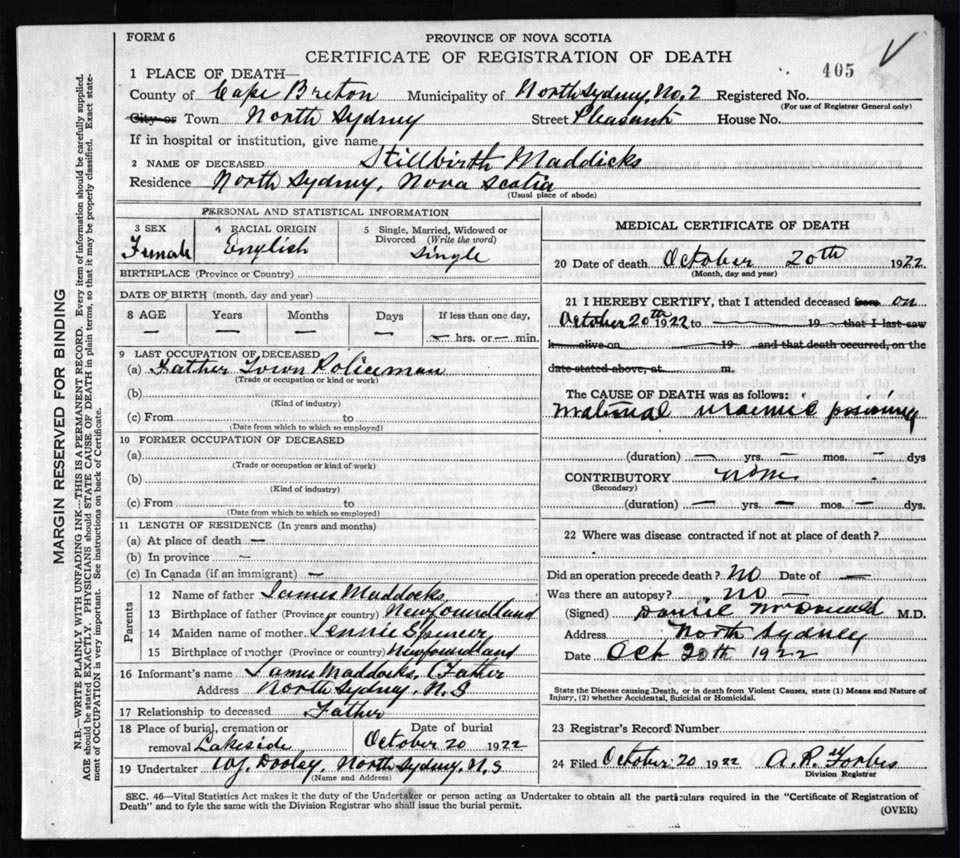 FORM 6
PROVINCE OF NOVA SCOTIA
CERTIFICATE OF REGISTRATION OF DEATH
405
1 PLACE OF DEATH—
County of Cape Breton Municipality of North Sydney, No. 2 Registered No.
(For use of Registrar General only)
City or Town North Sydney Street Pleasant House No.
If in hospital or institution, give name
2 NAME OF DECEASED Stillbirth Maddicks
Residence North Sydney, Nova Scotia
(Usual place of abode)
PERSONAL AND STATISTICAL INFORMATION
3 SEX 4 RACIAL ORIGIN 5 Single, Married, Widowed or Divorced (Write the word)
Female English Single
BIRTHPLACE (Province or Country)
DATE OF BIRTH (month, day and year)
8 AGE Years Months Days If less than one day,
— — — — hrs. or — min.
9 LAST OCCUPATION OF DECEASED
(a) Father Town Policeman
(Trade or occupation or kind or work)
(b)
(Kind of industry)
(c) From to
(Date from which to which so employed)
10 FORMER OCCUPATION OF DECEASED
(a)
(Trade or occupation or kind of work)
(b)
(Kind of industry)
(c) From to
(Date from which to which so employed)
11 LENGTH OF RESIDENCE (In years and months)
(a) At place of death —
(b) In province —
(c) In Canada (if an immigrant) —
Parents
12 Name of father James Maddocks
13 Birthplace of father (Province or country) Newfoundland
14 Maiden name of mother Jennie Spencer
15 Birthplace of mother (Province or country) Newfoundland
16 Informant's name James Maddocks, (Father
Address North Sydney, N.S
17 Relationship to deceased Father
18 Place of burial, cremation or removal Lakeside
Date of burial October 20 1922
19 Undertaker W.J. Dooley, North Sydney, N.S
(Name and Address)
MEDICAL CERTIFICATE OF DEATH
20 Date of death October 20th 1922
(Month, day and year)
21 I HEREBY CERTIFY, that I attended deceased from on
October 20th 1922 to — — — 19 — that I last saw
h— alive on 19 and that death occurred, on the
date stated above, at m.
The CAUSE OF DEATH was as follows:
Maternal uraemic poisoning
(duration) — yrs. — mos. — dys
CONTRIBUTORY None
(Secondary)
(duration) — yrs. — mos. — dys.
22 Where was disease contracted if not at place of death?
Did an operation precede death? NO Date of —
Was there an autopsy? NO —
(Signed) M.D.
Address North Sydney
Date Oct 20th 1922
State the Disease causing Death, or in death from Violent Causes, state (1) Means and Nature of
Injury, (2) whether Accidental, Suicidal or Homicidal.
23 Registrar's Record Number
24 Filed October 20 1922 A. R. Forbes
Division Registrar
SEC. 46—Vital Statistics Act makes it the duty of the Undertaker or person acting as Undertaker to obtain all the particulars required in the "Certificate of Registration of
Death" and to fyle the same with the Division Registrar who shall issue the burial permit.
(OVER)
MARGIN RESERVED FOR BINDING
N.B.—WRITE PLAINLY WITH UNFADING INK—THIS IS A PERMANENT RECORD. Every item of information should be carefully supplied.
AGE should be stated EXACTLY. PHYSICIANS should STATE CAUSE OF DEATH in plain terms, so that it may be properly classified. Exact state-
ment of OCCUPATION is very important. See instructions on back of Certificate.